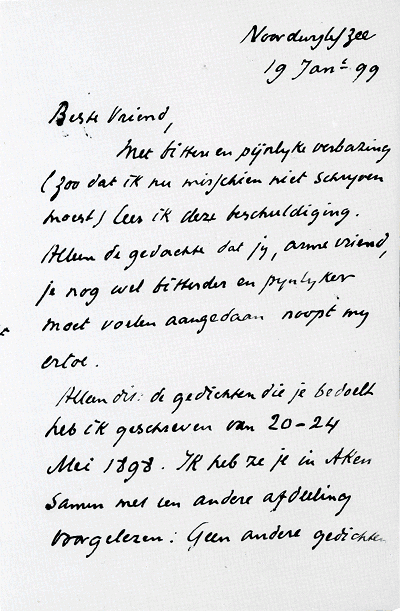 Noordwijk/zee
19 Jan^r 99
Beste Vriend,
Met bittere en pijnlyke verbazing
(zoo dat ik nu misschien niet schryven
moest) lees ik deze beschuldiging.
Alleen de gedachte dat jy, arme vriend,
je nog wel bitterder en pynlyker
moet voelen aangedaan noopt my
ertoe.
Alleen dit: de gedichten die je bedoelt
heb ik geschreven van 20-24
Mei 1898. Ik heb ze je in Aken
samen met een andere afdeeling
voorgelezen: Geen andere gedichten